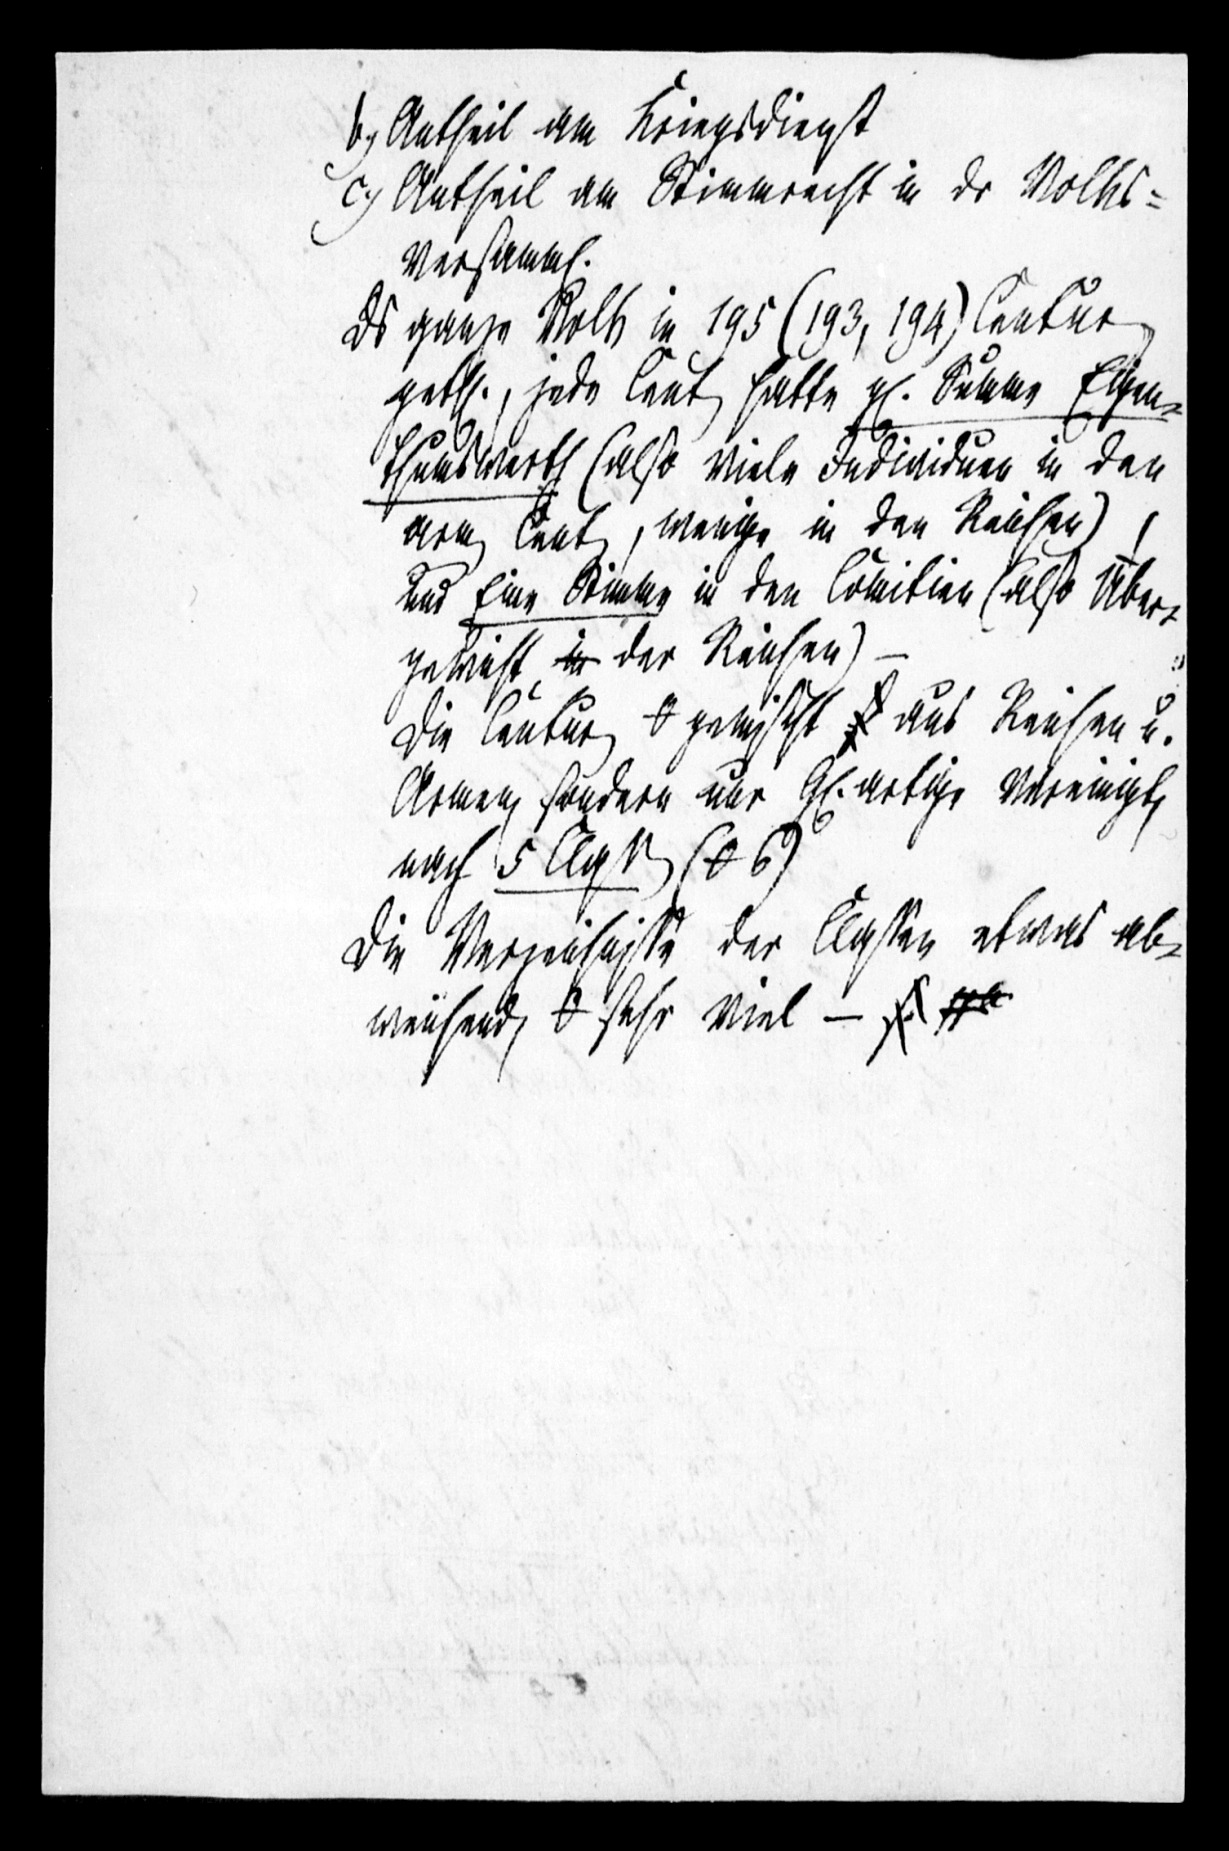 b, Antheil am Kriegsdienst
c,) Antheil am Stimmrecht in dr Volks=
versamml.
Ds ganze Volk in 195 (193, 194) Centur
geth., jede Cent hatte gl. Summe Eigen-
thumswerth (also viele Individuen in den
arm Cent, wenige in den Reichen),
und Eine Stimme in den Comitien (also Über-
gewicht in der Reichen) —
Die Centur 0 gemischt aus Reichen u.
Armen sondern nur Gl.artige vereinigt
nach 5 Class (0 6)
Die Verzeichnisse der Classen etwas ab-
weichend, 0 sehr viel —